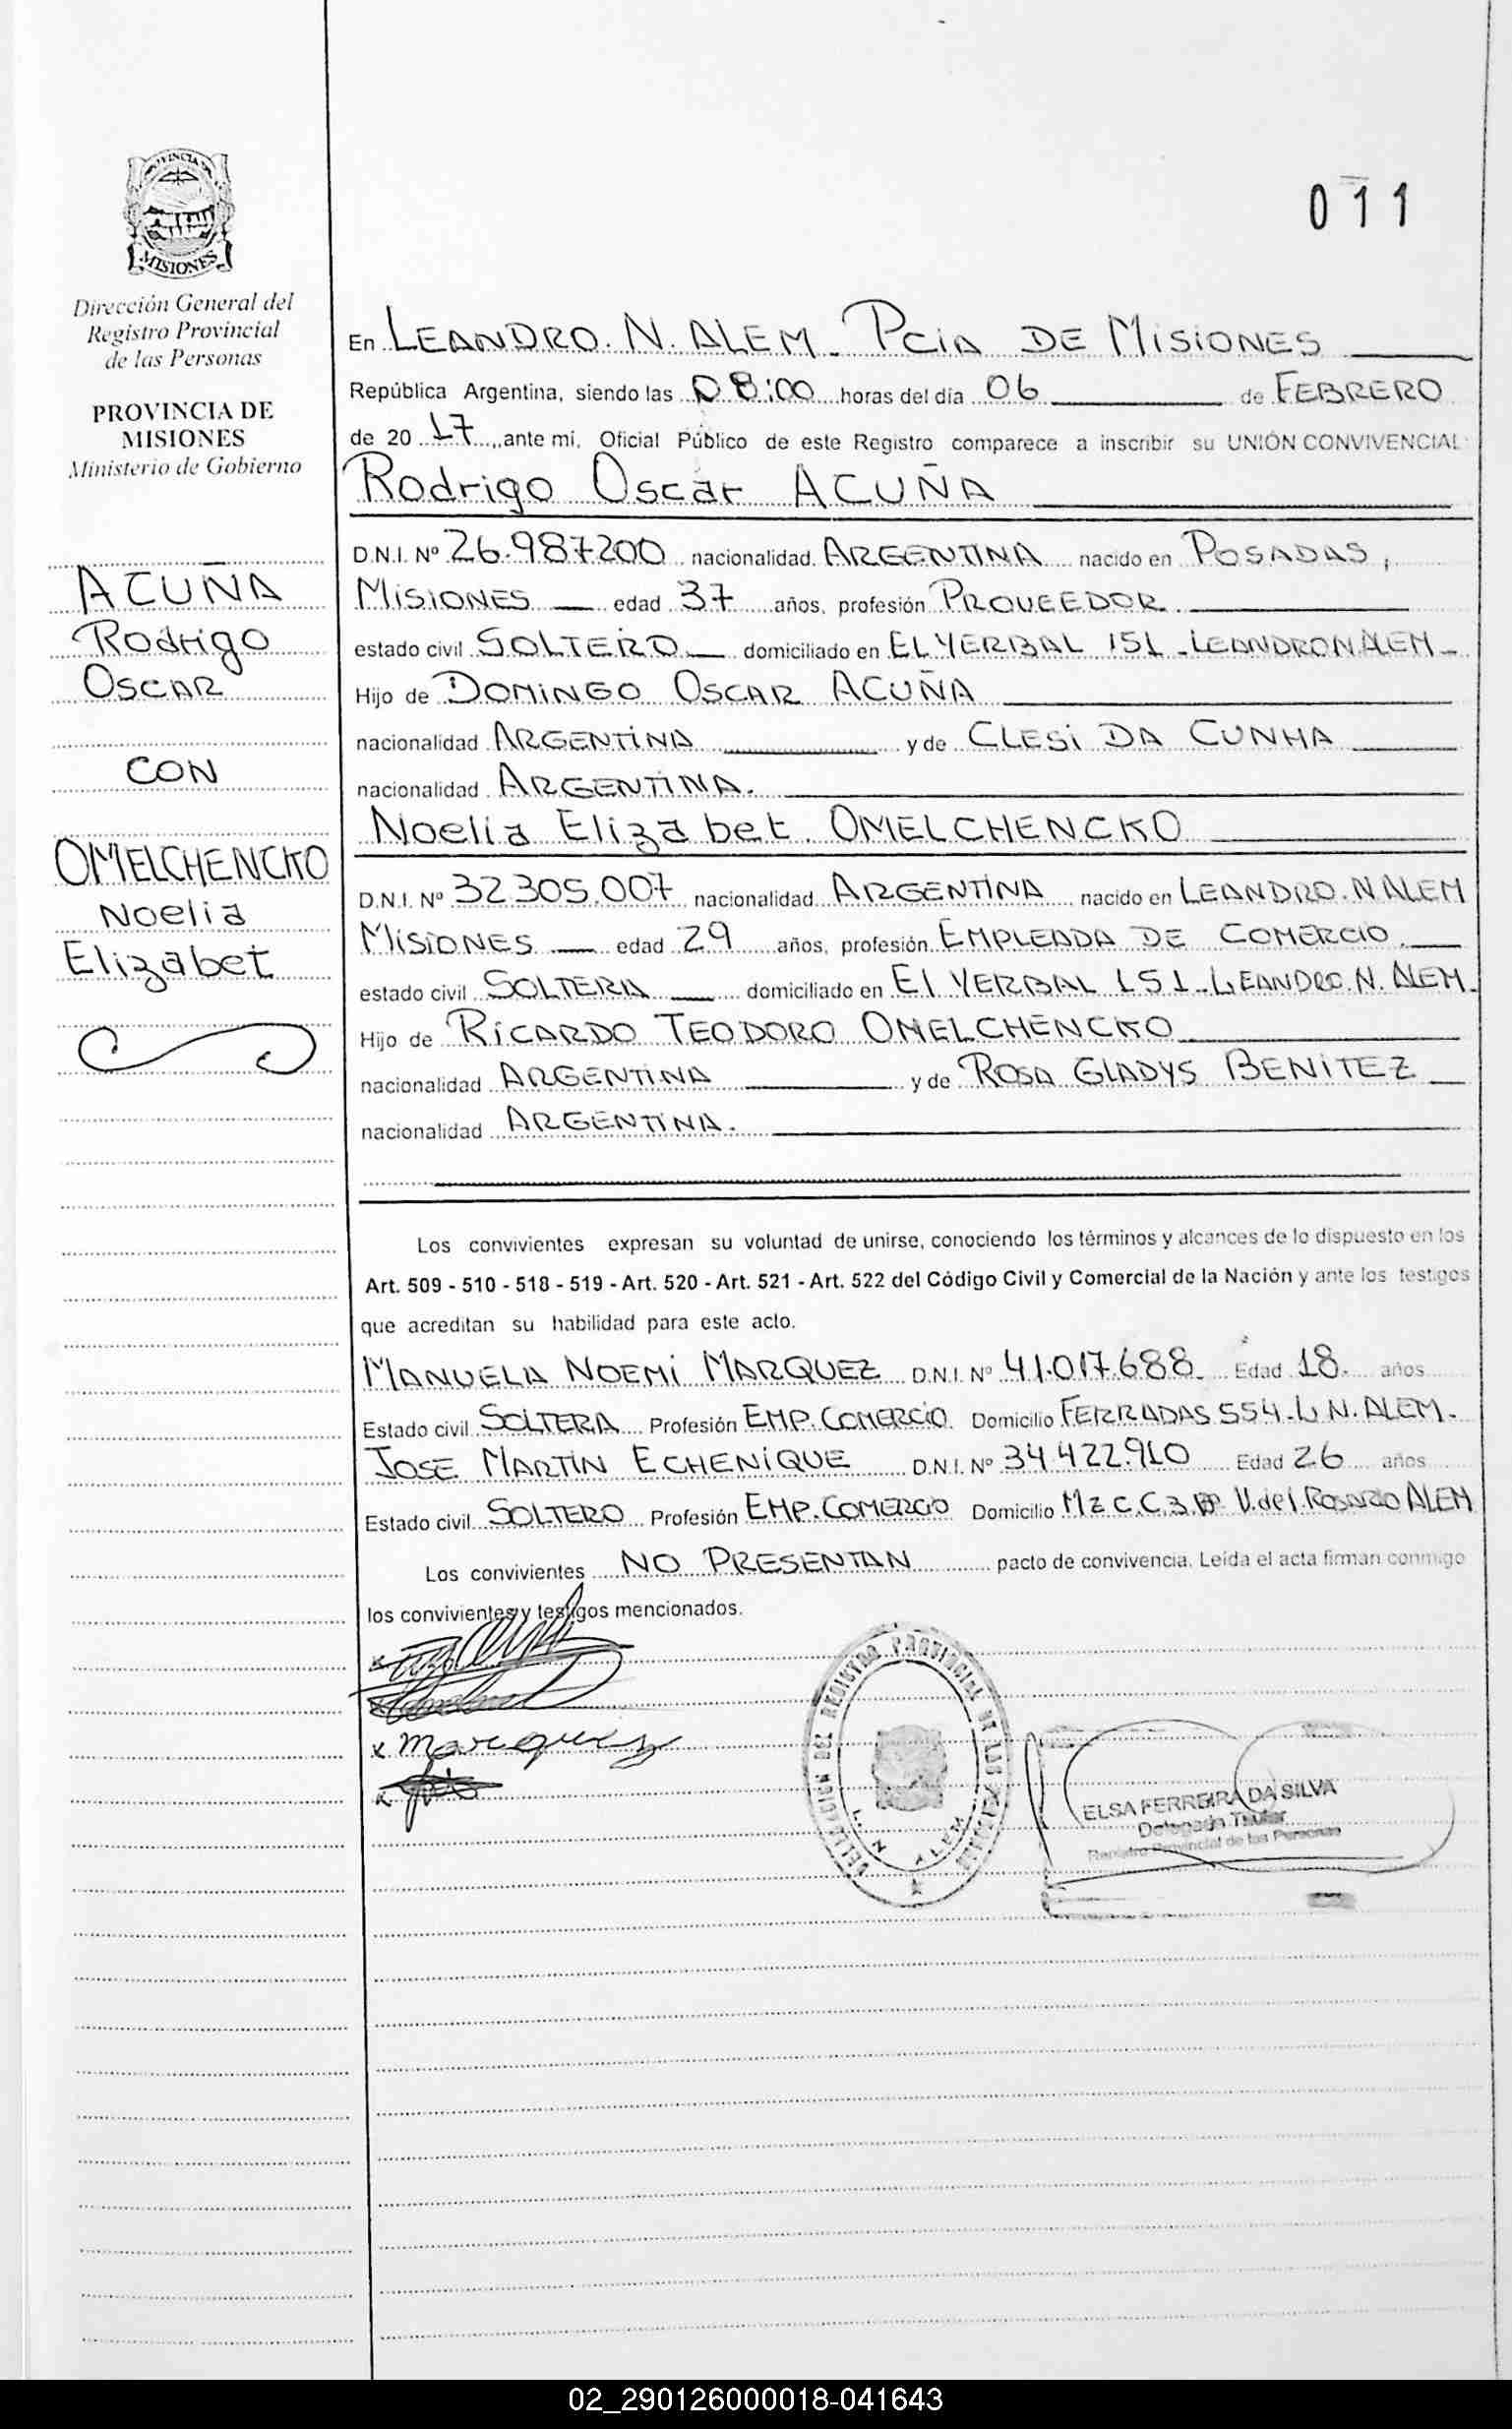 PROVINCIA DE
MISIONES
Dirección General del
Registro Provincial
de las Personas
PROVINCIA DE
MISIONES
Ministerio de Gobierno
ACUÑA
Rodrigo
OSCAR
CON
OMELCHENCKO
Noelia
Elizabet
011
En LEANDRO. N. ALEM. PciA DE MiSiONES
República Argentina, siendo las 08:00 horas del día 06 de FEBRERO
de 2017, ante mi, Oficial Público de este Registro comparece a inscribir su UNIÓN CONVIVENCIAL:
Rodrigo Oscar ACUÑA
D.N.I. Nº 26.987200 nacionalidad ARGENTINA nacido en POSADAS,
MiSiONES edad 37 años, profesión PROVEEDOR.
estado civil SOLTERO domiciliado en EL YERBAL 151 - LEANDRO N ALEM -
Hijo de DOMiNGO OSCAR ACUÑA
nacionalidad ARGENTiNA y de CLESi DA CUNHA
nacionalidad ARGENTiNA.
Noelia Elizabet OMELCHENCKO
D.N.I. Nº 32305.007 nacionalidad ARGENTiNA nacido en LEANDRO. N ALEM
MiSiONES edad 29 años, profesión EMPLEADA DE COMERCiO.
estado civil SOLTERA domiciliado en El YERBAL 151 - LEANDRO. N. ALEM.
Hijo de RiCARDO TEODORO OMELCHENCKO
nacionalidad ARGENTiNA y de ROSA GLADYS BENiTEZ
nacionalidad ARGENTiNA.
Los convivientes expresan su voluntad de unirse, conociendo los términos y alcances de lo dispuesto en los
Art. 509 - 510 - 518 - 519 - Art. 520 - Art. 521 - Art. 522 del Código Civil y Comercial de la Nación y ante los testigos
que acreditan su habilidad para este acto.
MANUELA NOEMi MARQUEZ D.N.I. Nº 41.017.688. Edad 18. años
Estado civil SOLTERA Profesión EMP. COMERCiO. Domicilio FERRADAS 554. L N. ALEM.
JOSE MARTiN ECHENiQUE D.N.I. Nº 34422.910 Edad 26 años
Estado civil SOLTERO Profesión EMP. COMERCiO Domicilio Mz C.C.3. Bº V. del ROSARIO ALEM
Los convivientes NO PRESENTAN pacto de convivencia. Leída el acta firman conmigo
los convivientes y testigos mencionados.
x
x marquez
x
DELEGACION DEL REGISTRO PROVINCIAL DE LAS PERSONAS
L. N. ALEM
ELSA FERREIRA DA SILVA
Delegada Titular
Registro Provincial de las Personas
02_290126000018-041643